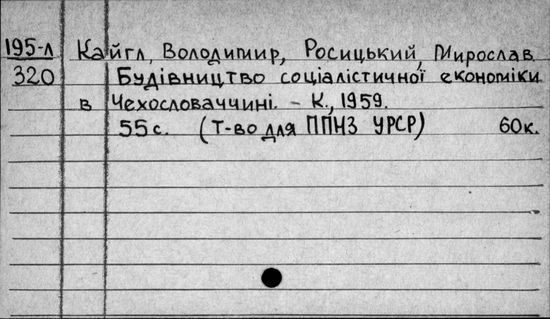 195-л Кайгл, Володимир, Росицький, Мирослав
320 Будівництво соціалістичної економіки
в Чехословаччині. - К., 1959.
55 с. (Т-во для ППНЗ УРСР) 60к.